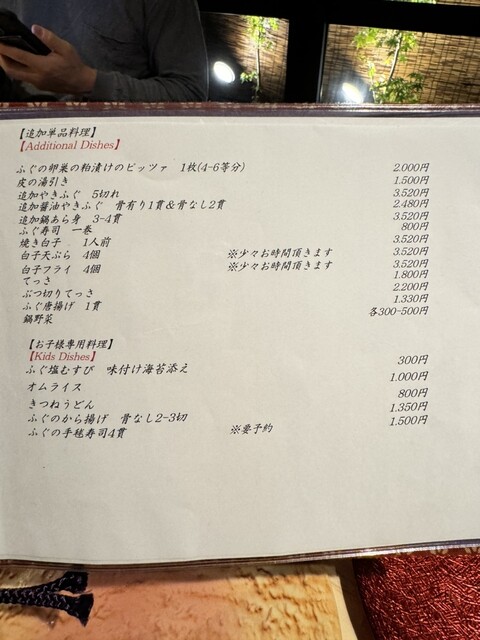 【追加単品料理】
【Additional Dishes】
ふぐの卵巣の粕漬けのピッツァ 1枚(4-6等分) 2.000円
皮の湯引き 1.500円
追加やきふぐ 5切れ 3.520円
追加醤油やきふぐ 骨有り1貫&骨なし2貫 2.480円
追加鍋あら身 3-4貫 3.520円
ふぐ寿司 一巻 800円
焼き白子 1人前 3.520円
白子天ぷら 4個 ※少々お時間頂きます 3.520円
白子フライ 4個 ※少々お時間頂きます 3.520円
てっさ 1.800円
ぶつ切りてっさ 2.200円
ふぐ唐揚げ 1貫 1.330円
鍋野菜 各300-500円
【お子様専用料理】
【Kids Dishes】
ふぐ塩むすび 味付け海苔添え 300円
オムライス 1.000円
きつねうどん 800円
ふぐのから揚げ 骨なし2-3切 1.350円
ふぐの手毬寿司4貫 ※要予約 1.500円